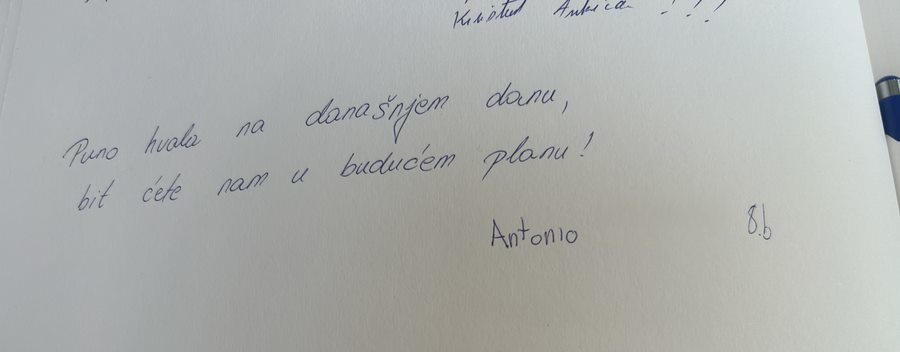 Puno hvala na današnjem danu,
bit ćete nam u budućem planu!
Antonio 8.b